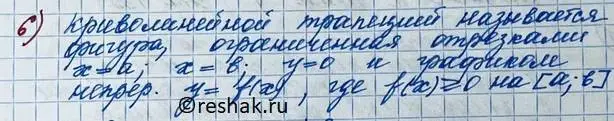 6) Криволинейной трапецией называется
фигура, ограниченная отрезками
x=a; x=в; y=0 и графиком
непрер. y=f(x), где f(x)≥0 на [a;в]
Reshak.ru